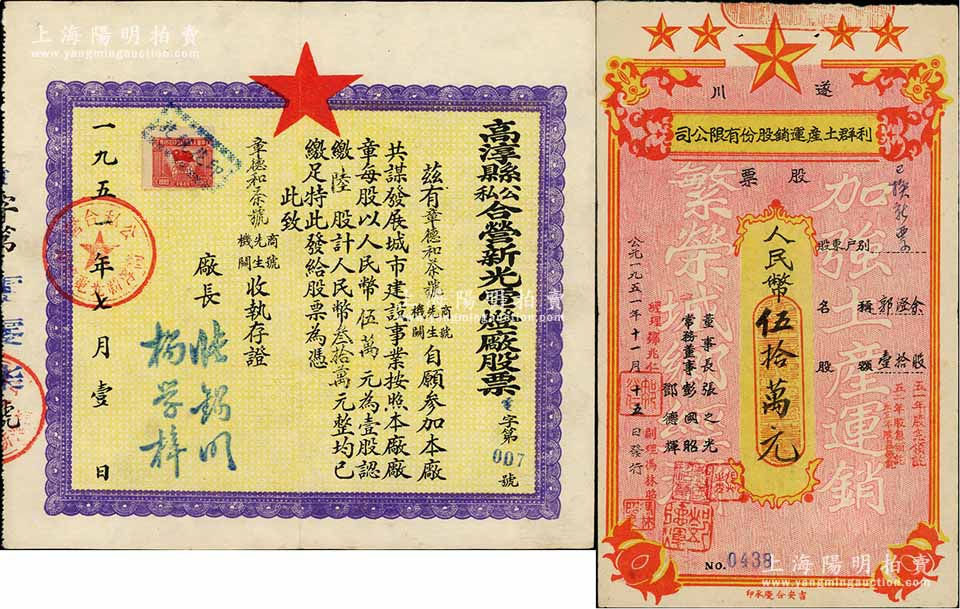 上海陽明拍賣
www.yangmingauction.com
高淳縣公私合營新光電燈廠股票
字第007號
茲有章德和茶號 商號先生機關 自願參加本廠
共謀發展城市建設事業按照本廠廠
章每股以人民幣伍萬元為壹股認
繳陸股計人民幣叁拾萬元整均已
繳足特此發給股票為憑
此致
章德和茶號 商號先生機關 收執存證
廠長
楊學梓
一九五二年七月壹日
字第
號
上海陽明拍賣
www.yangmingauction.com
遂川
利群土產運銷股份有限公司
股票
加強土產運銷
繁榮城鄉經濟
已換新票
股東戶別
名稱 郭隆余
股額 壹拾股
人民幣
伍拾萬元
董事長 張之光
常務董事 彭國昭
鄧德輝
公元一九五一年十一月十五日發行
NO. 0438
吉安合慶承印
上海陽明拍賣
www.yangmingauction.com